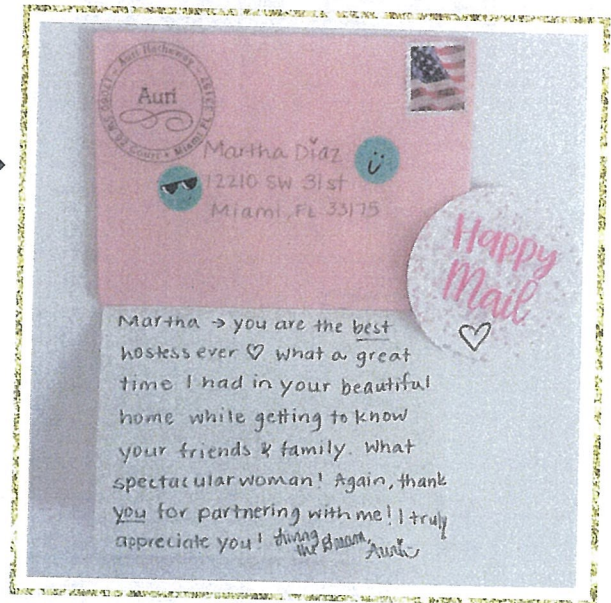 Auri Hathaway
Auri
Court • Miami FL
Martha Diaz
12210 SW 31st
Miami, FL 33175
Happy
Mail
Martha → you are the best
hostess ever ♡ what a great
time I had in your beautiful
home while getting to know
your friends & family. What
spectacular woman! Again, thank
you for partnering with me! I truly
appreciate you! living
the dream,
Auri